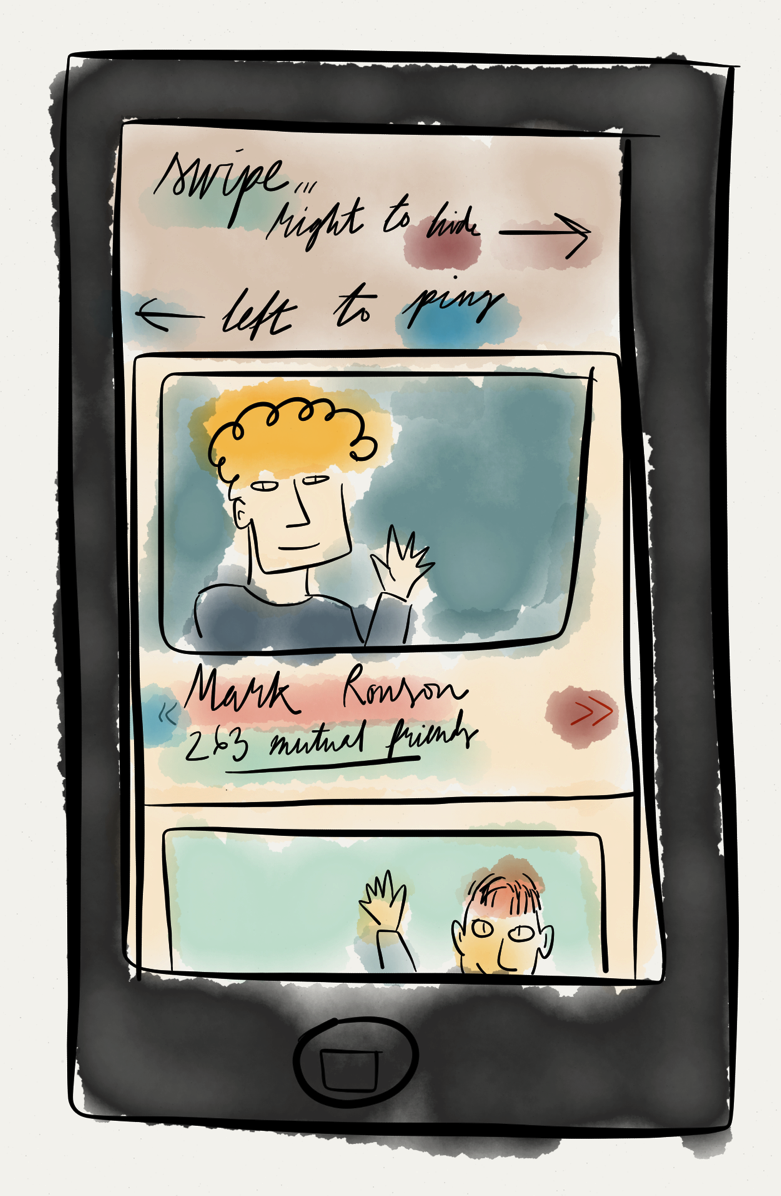 swipe...
right to hide →
← left to ping
Mark Ronson
« »
263 mutual friends